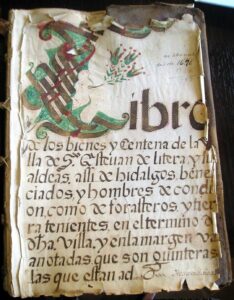 Libro
de los bienes y Centena de la vi
lla de Sn. Esteuan de litera, y sus
aldeas, assi de hidalgos, bene
ciados, y hombres de condici
on, como de forasteros, y tier
ra tenientes, en el termino de
dha, villa, y en la margen van
anotadas que son quinteras
las que estan ad